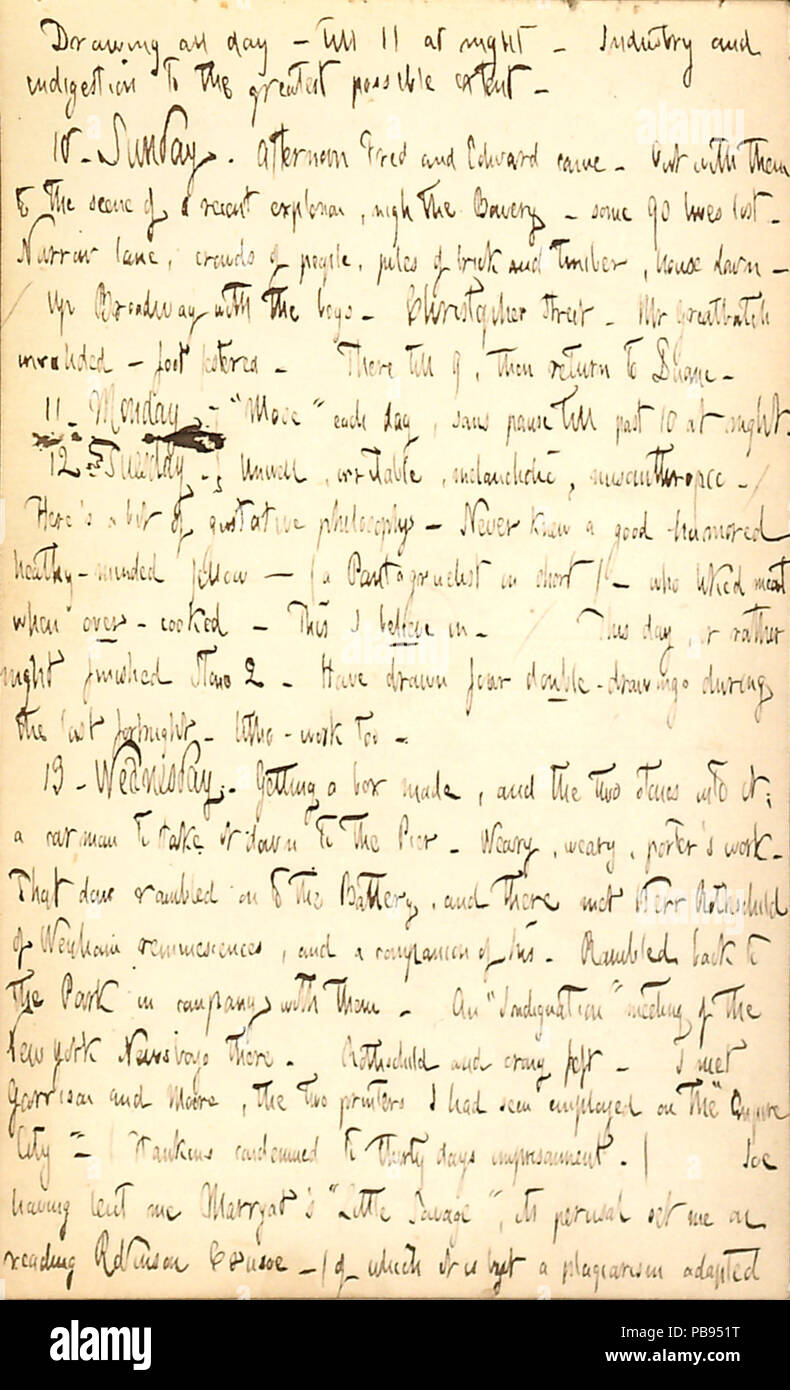 Drawing all day – till 11 at night – Industry and
indigestion to the greatest possible extent –
10 – Sunday. Afternoon Fred and Edward came – Out with them
to the scene of a recent explosion, nigh the Bowery – some 90 lives lost –
Narrow lane, crowds of people, piles of brick and timber, house down –
Up Broadway with the boys – Christopher Street – Mr Greatbatch
invalided – foot festered – There till 9, then return to Duane –
11 – Monday. } "Mose" each day, sans pause till past 10 at night.
12 – Tuesday. } Unwell, irritable, melancholic, misanthropic – /
Here's a bit of gustative philosophy – Never knew a good-humored
healthy-minded fellow – (a Pantagruelist in short) – who liked meat
when over-cooked – This I believe in – / This day, or rather
night finished Stone 2 – Have drawn four double-drawings during
the last fortnight – litho-work too –
13 – Wednesday. Getting a box made, and the two stones into it;
a carman to take it down to the Pier – Weary, weary, porter's work –
That done rambled on to the Battery, and there met Herr Rothschild
of reminiscences, and a companion of his – Rambled back to
the Park in company with them – An "Indignation" meeting of the
New York Newsboys there – Rothschild and crony left – I met
Garrison and Moore, the two printers I had seen employed on the "Empire
City – (Hankins condemned to thirty days imprisonment.) Joe
having lent me Marryat's "Little Savage", its perusal set me on
reading Robinson Crusoe – (of which it is but a plagiarism adapted
alamy
alamy
Image ID: PB951T
www.alamy.com